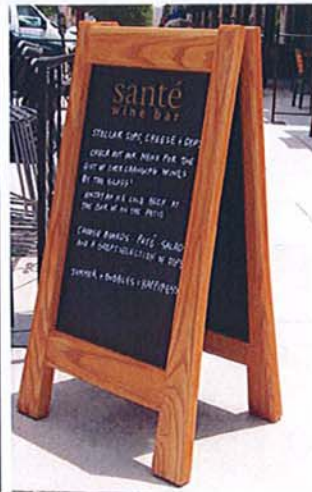 santé
wine bar
STELLAR SIPS, CHEESE + DIPS
CHECK OUT OUR MENU FOR THE
LIST OF EVER CHANGING WINES
BY THE GLASS!
ENJOY AN ICE COLD BEER AT
THE BAR OR ON THE PATIO
CHEESE BOARDS PATÉ SALAD
AND A GREAT SELECTION OF DIPS
SUMMER + BUBBLES = HAPPINESS